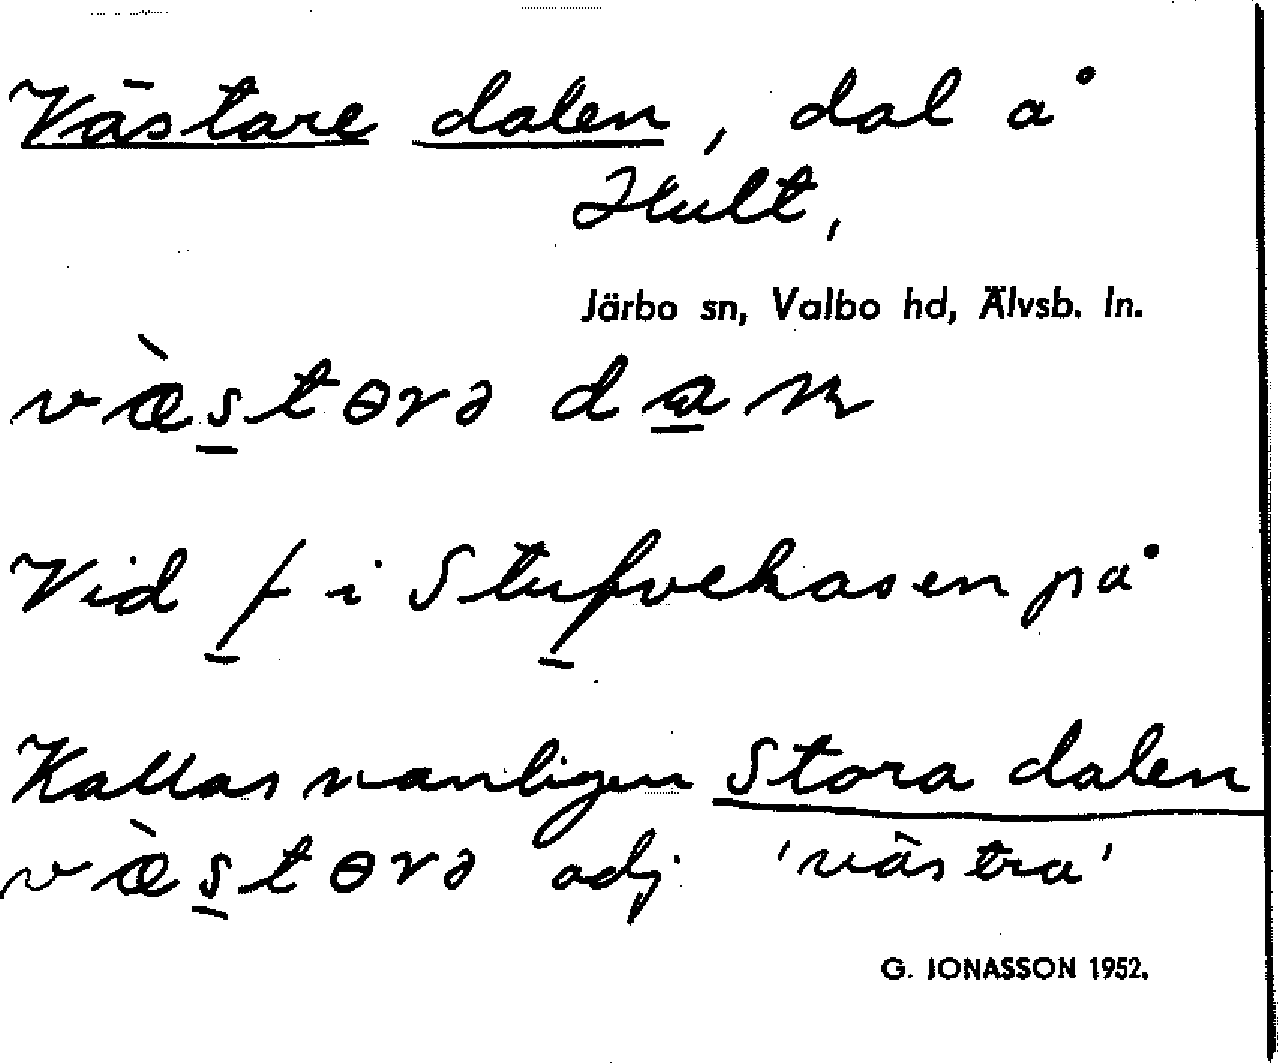 Västare dalen, dal å
Hult,
Järbo sn, Valbo hd, Älvsb. ln.
væ̀stɵrə
Vid f i Stufvehasen på
Kallas vanligen Stora dalen
væ̀stɵrə adj 'västra'
G. JONASSON 1952.